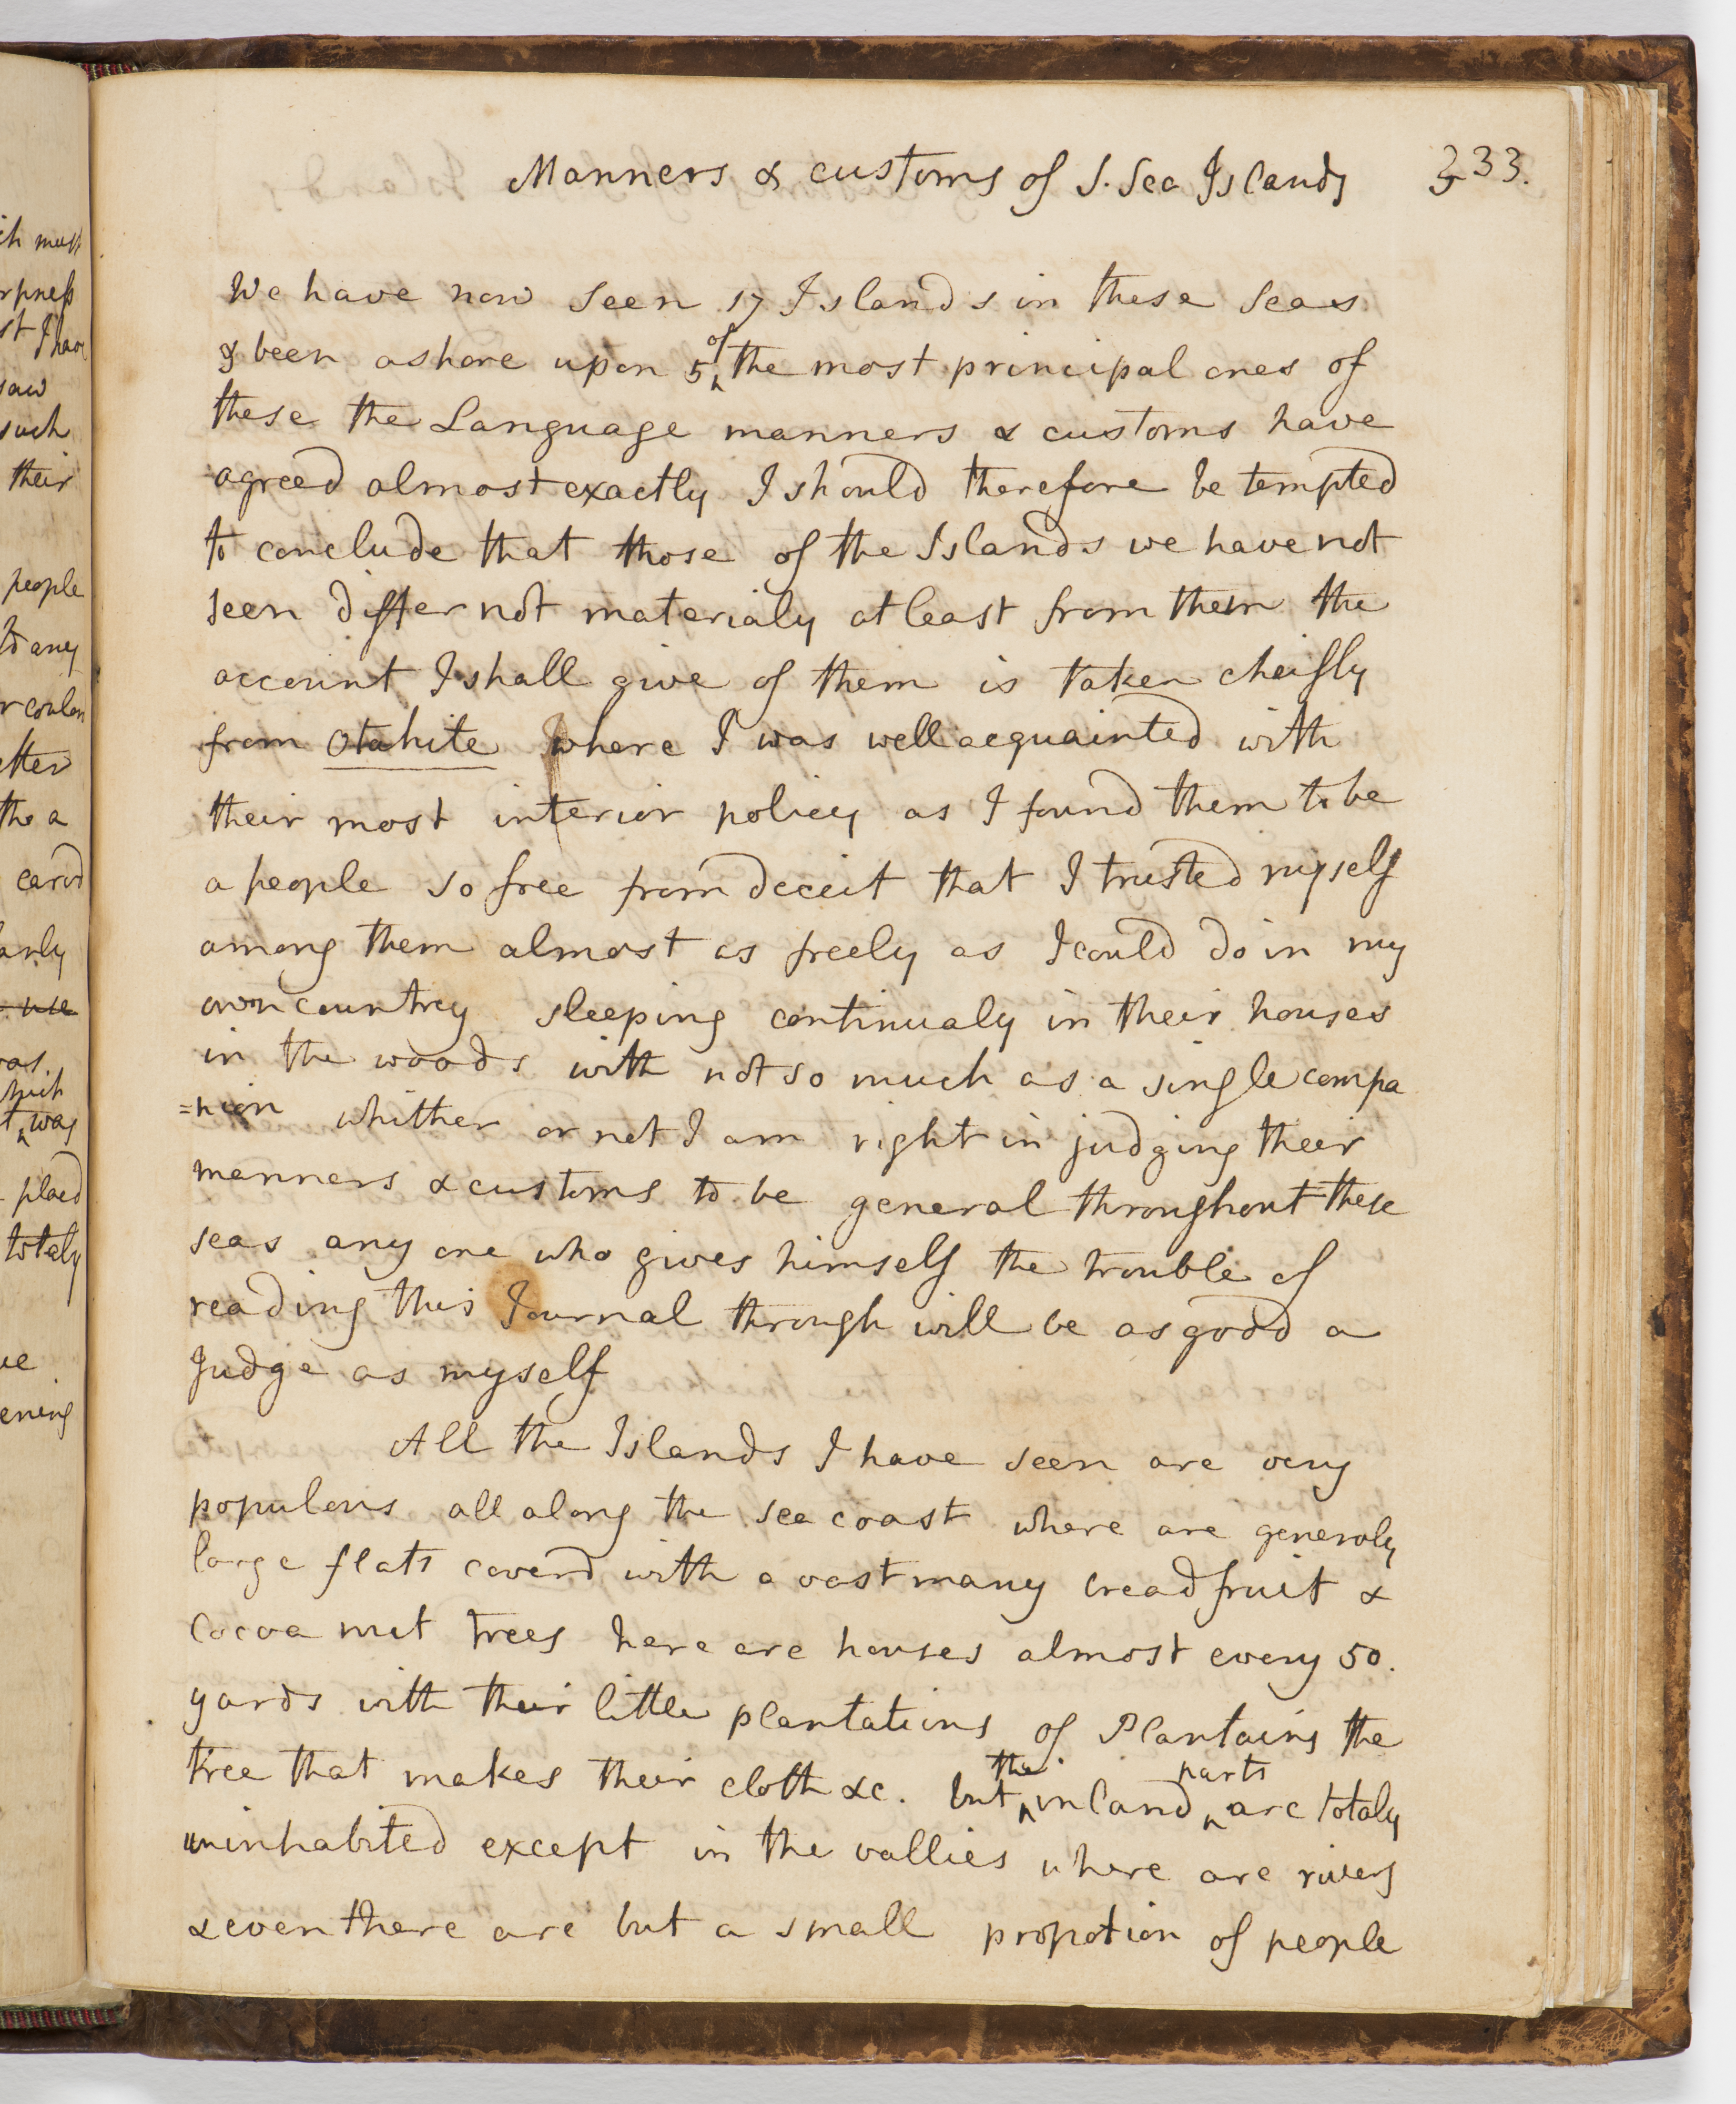 Manners & customs of S. Sea Islands 233.
We have now seen 17 Islands in these Seas
& been ashore upon 5 of the most principal ones of
these the Language manners & customs have
agreed almost exactly I should therefore be tempted
to conclude that those of the Islands we have not
seen differ not materialy at least from them the
account I shall give of them is taken cheifly
from Otahite where I was well acquainted with
their most interior policy as I found them to be
a people so free from deceit that I trusted myself
among them almost as freely as I could do in my
own countrey sleeping continualy in their houses
in the woods with not so much as a single compa
=nion whither or not I am right in judging their
manners & customs to be general throughout these
seas any one who gives himself the trouble of
reading this Journal through will be as good a
Judge as myself
All the Islands I have seen are very
populous all along the sea coast where are generaly
large flats coverd with a vast many breadfruit &
Cocoa nut trees here are houses almost every 50.
yards with their little plantations of Plantains the
tree that makes their cloth &c. but the inland parts are totaly
uninhabited except in the vallies where are rivers
& even there are but a small propotion of people
ch must
rpness
st I have
saw
such
their
people
any
etter
the a
carvd
arly
use
was.
which
t was
placd
totaly
ening